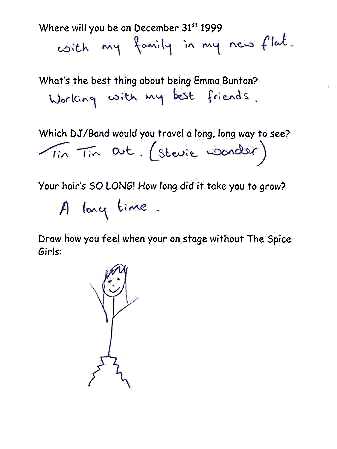 Where will you be on December 31st 1999
with my family in my new flat.
What's the best thing about being Emma Bunton?
Working with my best friends.
Which DJ/Band would you travel a long, long way to see?
Tin Tin Out. (Stevie Wonder)
Your hair's SO LONG! How long did it take you to grow?
A long time.
Draw how you feel when your on stage without The Spice
Girls: